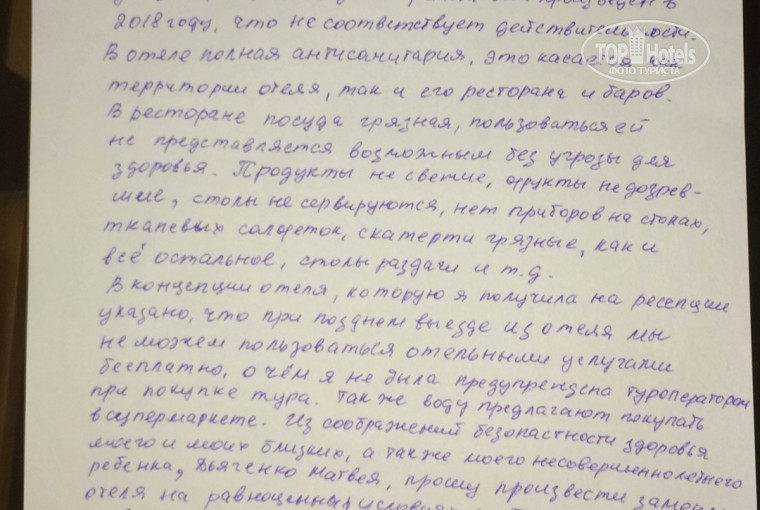 2018 году, что не соответствует действительности.
В отеле полная антисанитария, это касается как
территории отеля, так и его ресторана и баров.
В ресторане посуда грязная, пользоваться ей
не представляется возможным без угрозы для
здоровья. Продукты не свежие, фрукты не дозрев-
шие, столы не сервируются, нет приборов на столах,
тканевых салфеток, скатерти грязные, как и
всё остальное, столы раздачи и т.д.
В концепции отеля, которую я получила на ресепшие
указано, что при позднем выезде из отеля мы
не можем пользоваться отельными услугами
бесплатно, о чём я не была предупреждена туроператором
при покупке тура. Также воду предлагают покупать
в супермаркете. Из соображений безопастности здоровья
моего и моих близких, а также моего несовершеннолетнего
ребенка, Дьяченко Матвея, прошу произвести
отеля на равноценных
TOPHotels
ФОТО ТУРИСТА